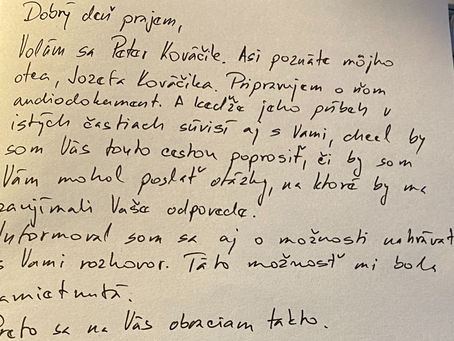 Dobrý deň prajem,
Volám sa Peter Kováčik. Asi poznáte môjho
otca, Jozefa Kováčika. Pripravujem o ňom
audiodokument. A keďže jeho príbeh v
istých častiach súvisí aj s Vami, chcel by
som Vás touto cestou poprosiť, či by som
Vám mohol poslať otázky, na ktoré by ma
zaujímali Vaše odpovede.
Informoval som sa aj o možnosti nahrávať
s Vami rozhovor. Táto možnosť mi bola
zamietnutá.
Preto sa na Vás obraciam takto.